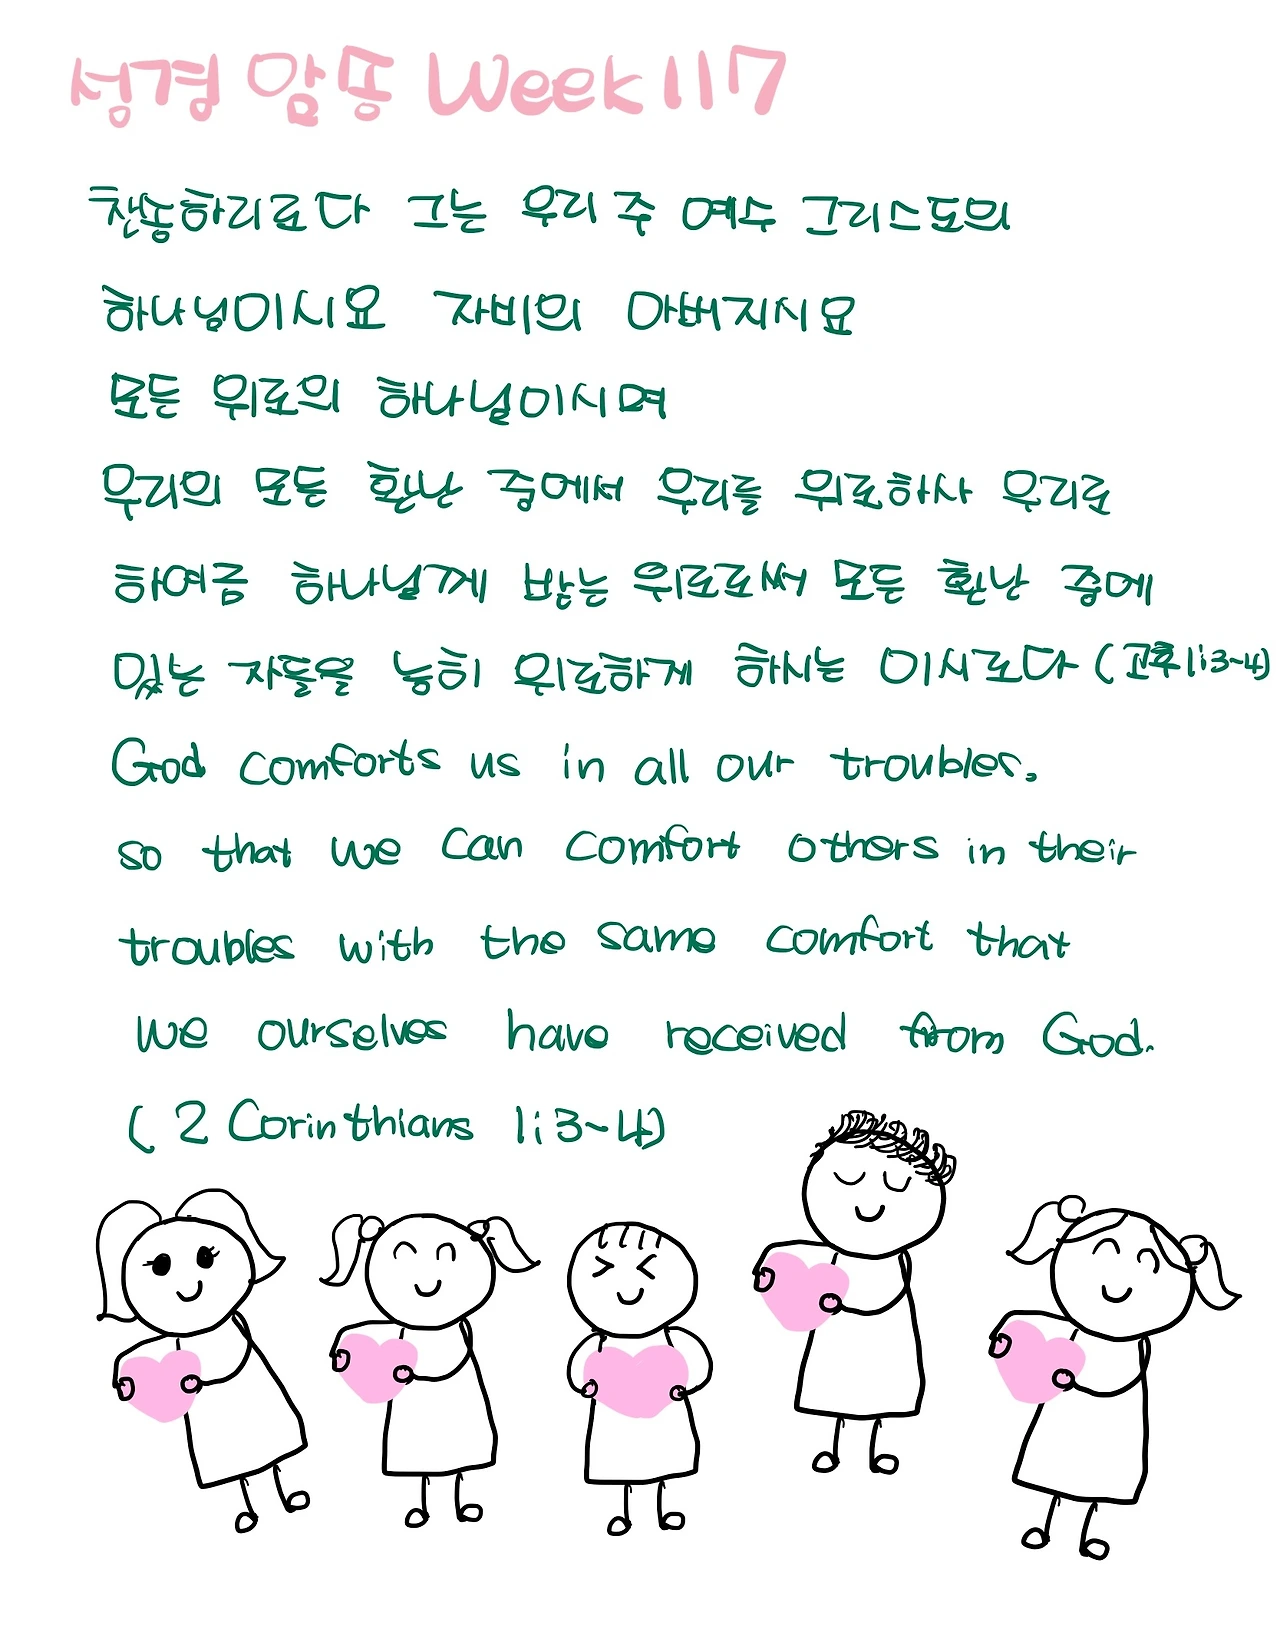 성경 암송 Week 117
찬송하리로다 그는 우리 주 예수 그리스도의
하나님이시요 자비의 아버지시요
모든 위로의 하나님이시며
우리의 모든 환난 중에서 우리를 위로하사 우리로
하여금 하나님께 받는 위로로써 모든 환난 중에
있는 자들을 능히 위로하게 하시는 이시로다 (고후 1:3~4)
God comforts us in all our troubles,
so that we can comfort others in their
troubles with the same comfort that
we ourselves have received from God.
(2 Corinthians 1:3~4)